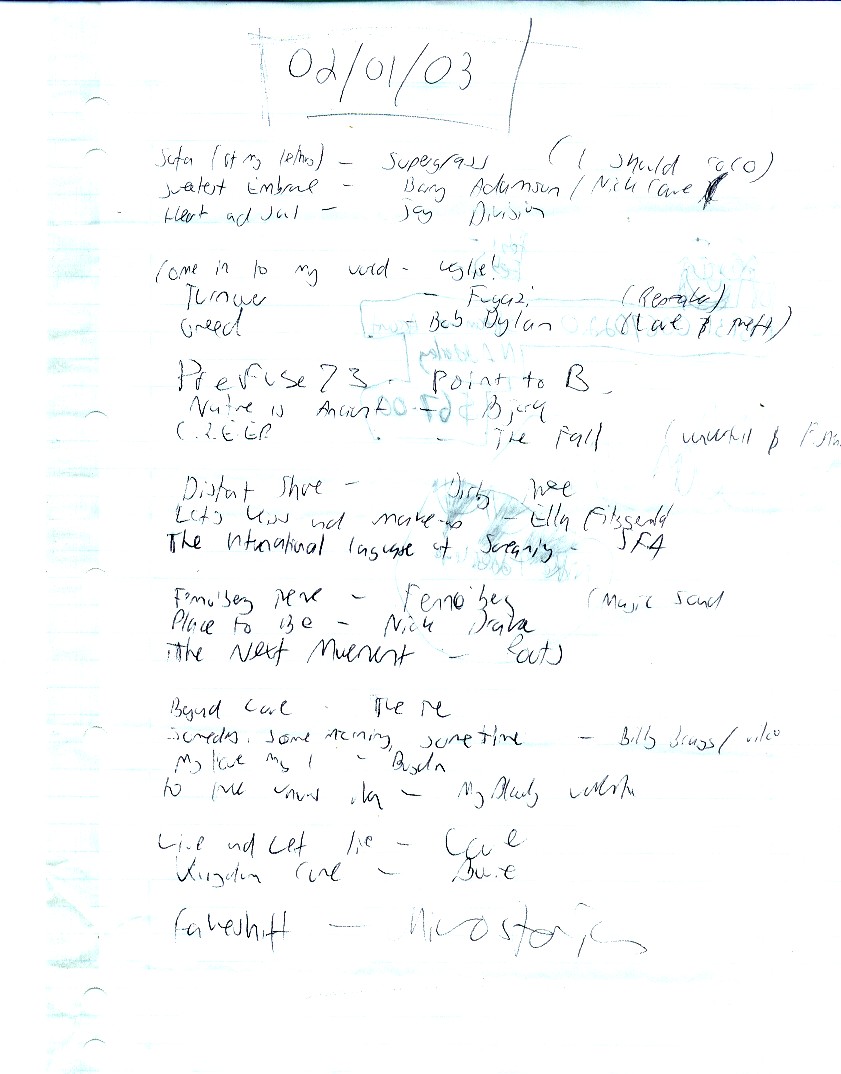 02/01/03
Sofa (of my lethos) - Supergrass (I should coco)
Sweetest Embrace - Barry Adamson / Nick Cave
Heart and Soul - Joy Division
Come in to my world - Kylie!
Turnover - Fugazi (Repeater)
Greed Bob Dylan (Love & theft)
Prefuse 73 - Point to B
Nature is Ancient - Bjork
C.R.E.E.P. - The Fall (wonderful &
Distant Shore - Dirty Three
Let's kiss and make-up - Ella Fitzgerald
The International language of Screaming - SFA
Fenno'berg - Fenno'berg (Magic Sound
Place to Be - Nick Drake
The Next Movement - Roots
Beyond Love - The The
Someday, some morning, sometime - Billy Bragg / wilco
My
to - My Bloody valentine
Live and Let - Cave
Kingdom Come - Bowie
Fakeshift - Microstoria